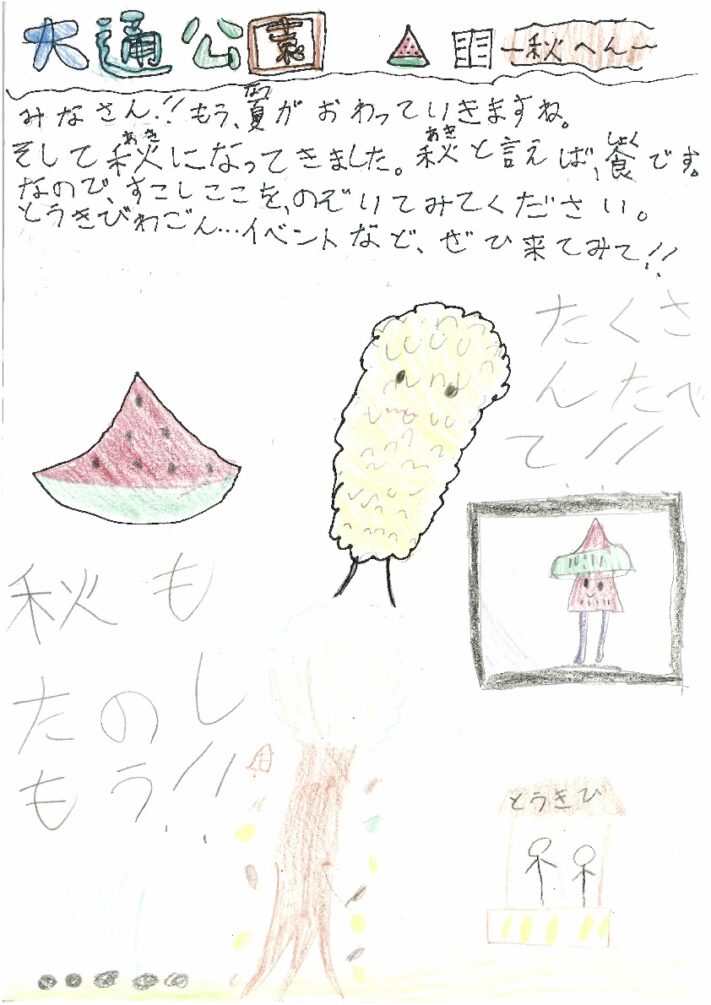 大通公園 ～秋へん～
みなさん!!もう、夏がおわっていきますね。
なつ
そして秋になってきました。秋と言えば、食です。
あき あき しょく
なので、すこしここを、のぞいてみてください。
とうきびわごん…イベントなど、ぜひ来てみて!!
たくさ
んたべ
て!!
秋も
たのし
もう!!
とうきび